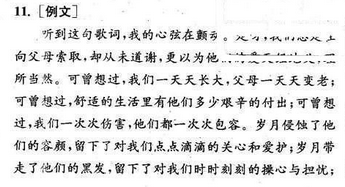 11. [例文]
听到这句歌词,我的心弦在颤
向父母索取,却从未道谢,更以为他
所当然。可曾想过,我们一天天长大,父母一天天变老;
可曾想过,舒适的生活里有他们多少艰辛的付出;可曾想
过,我们一次次伤害,他们都一次次包容。岁月侵蚀了他
们的容颜,留下了对我们点点滴滴的关心和爱护;岁月带
走了他们的黑发,留下了对我们时时刻刻的操心与担忧;